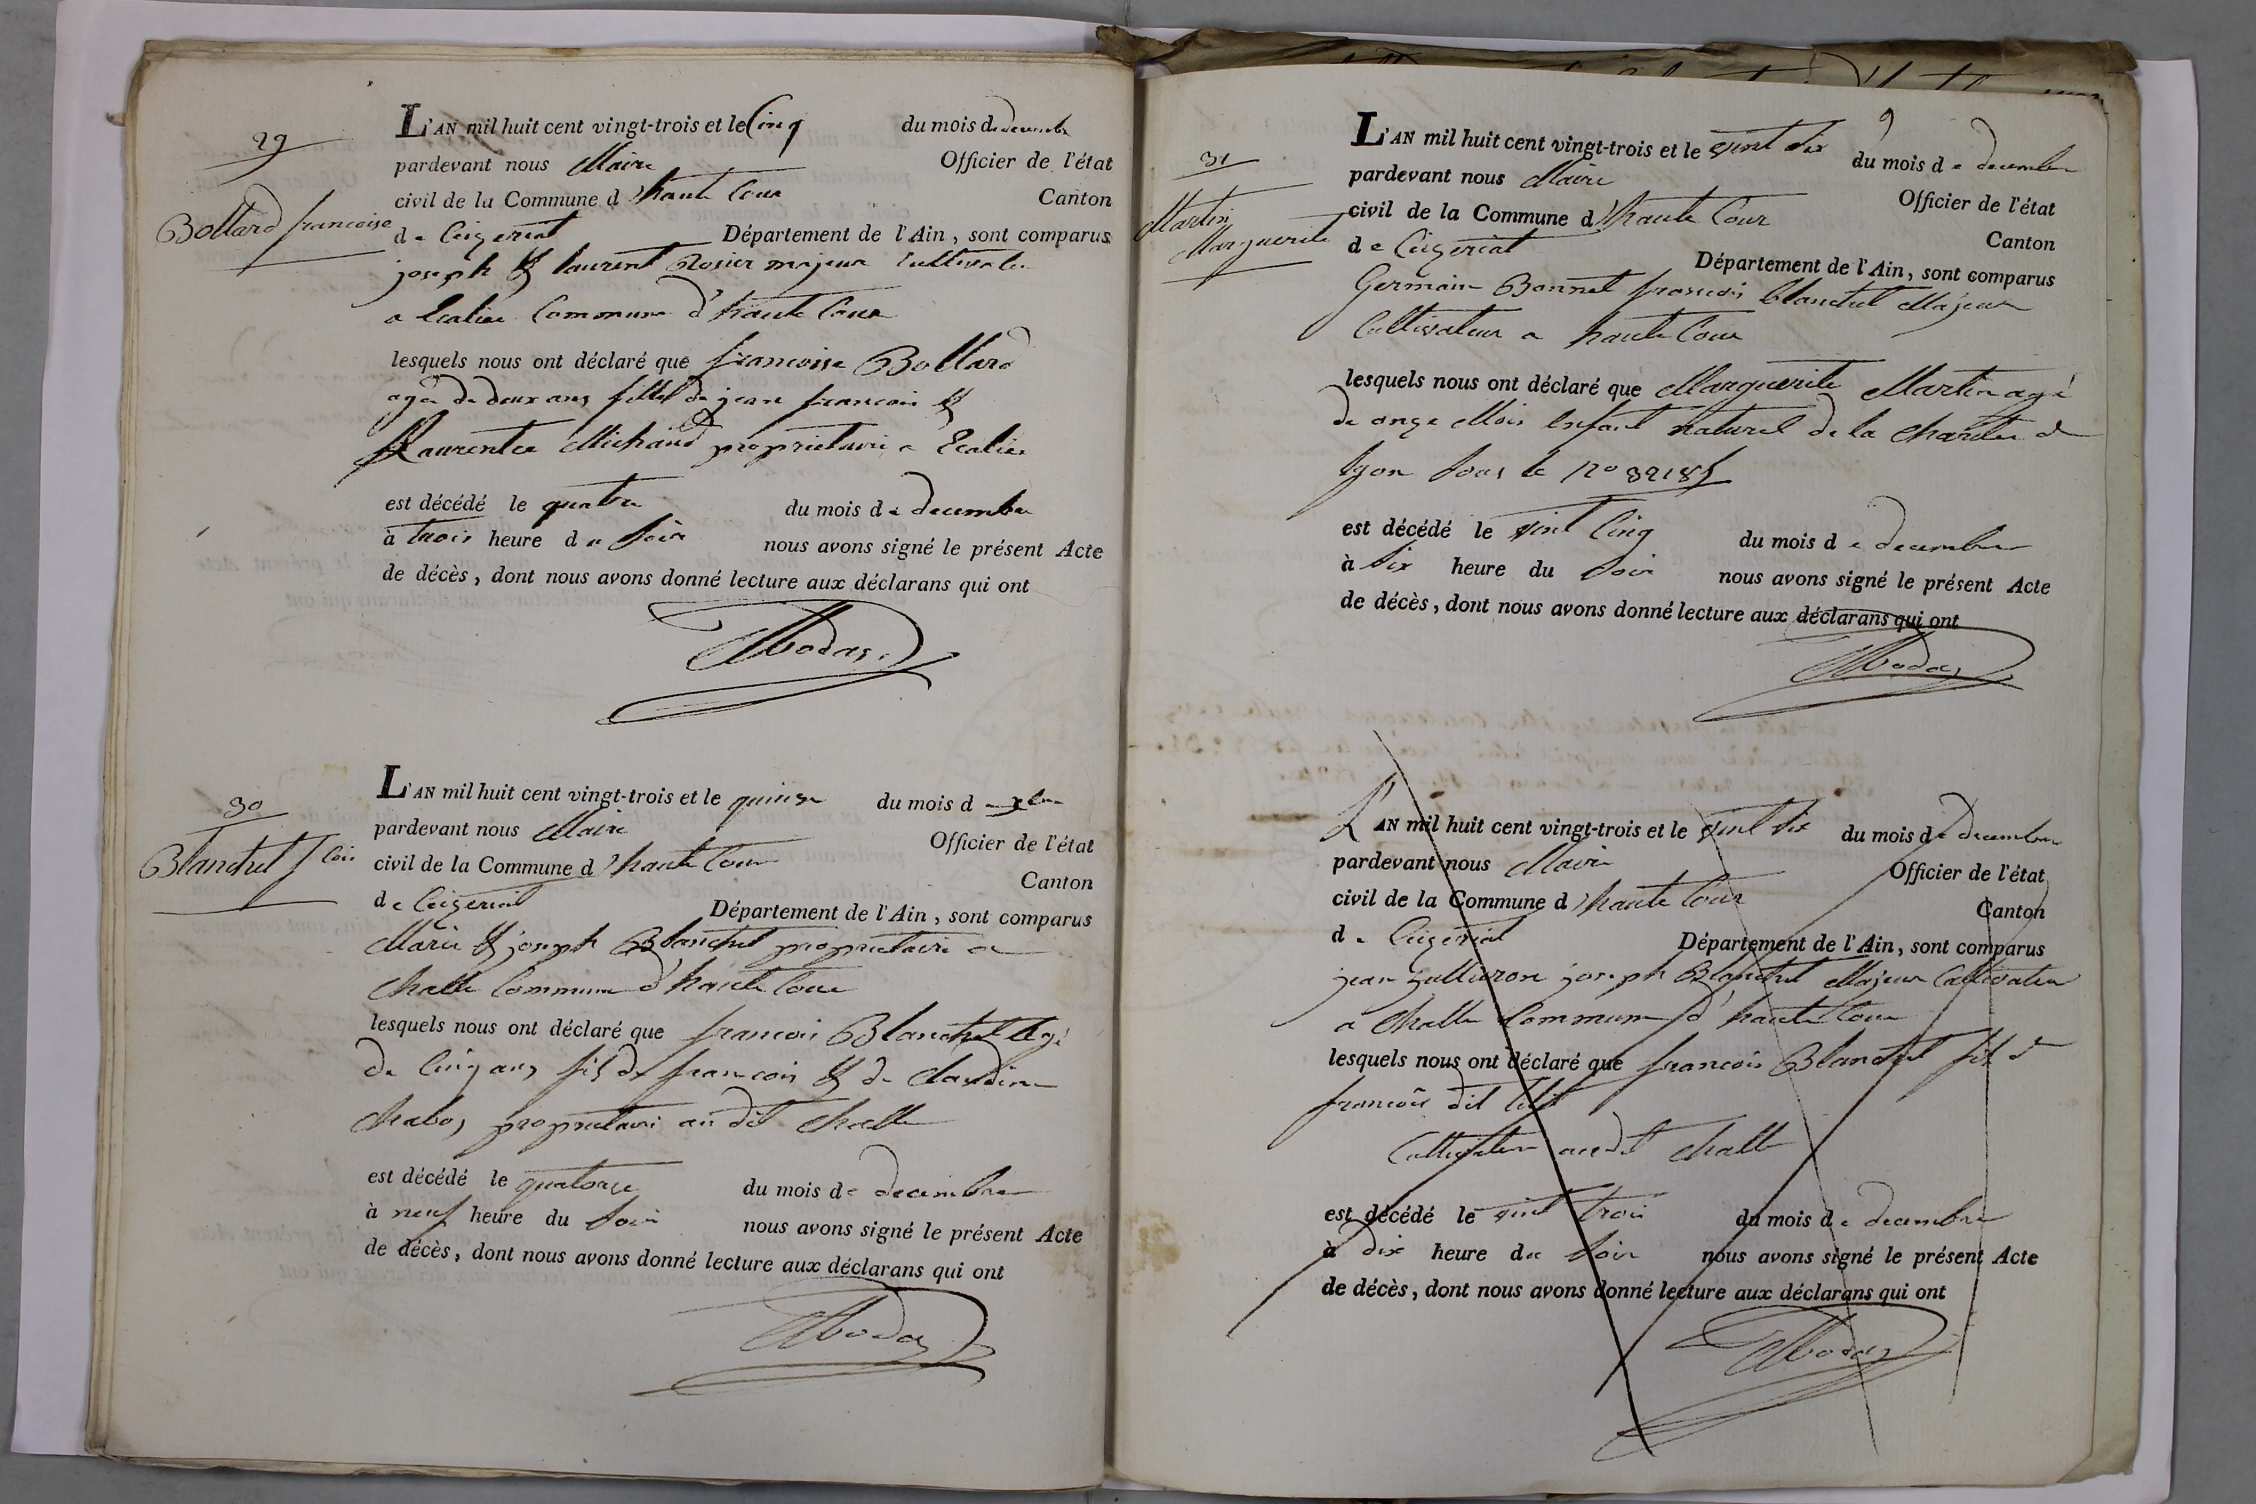 29
Bollard francoise
L'AN mil huit cent vingt-trois et le Cinq du mois de decembre
pardevant nous Maire Officier de l'état
civil de la Commune d'haute Cour Canton
de Ceizeriat Département de l'Ain, sont comparus
joseph & laurent Rosier majeur Cultivateur
a Commune d'haute Cour
lesquels nous ont déclaré que francoise Bollard
agée de deux ans fille de jean francois &
Laurentce Michaud proprietaire a
est décédé le quatre du mois de decembre
à trois heure du soir nous avons signé le présent Acte
de décès, dont nous avons donné lecture aux déclarans qui ont
30
Blanchet fcois
L'AN mil huit cent vingt-trois et le quinze du mois d xbre
pardevant nous Maire Officier de l'état
civil de la Commune d'haute Cour Canton
de Ceizeriat Département de l'Ain, sont comparus
Marie & joseph Blanchet proprietaire a
Challe Commune d'haute Cour
lesquels nous ont déclaré que francois Blanchet agé
de Cinq ans fils de francois & de Claudine
Chabos proprietaire au dit Challe
est décédé le quatorze du mois de decembre
à neuf heure du soir nous avons signé le présent Acte
de décès, dont nous avons donné lecture aux déclarans qui ont
9
31
Martin
Marguerite
L'AN mil huit cent vingt-trois et le vint six du mois de decembre
pardevant nous Maire Officier de l'état
civil de la Commune d'haute Cour Canton
de Ceizeriat Département de l'Ain, sont comparus
Germain Bonnet francois blanchet Majeur
Cultivateur a haute Cour
lesquels nous ont déclaré que Marguerite Martin agé
de onze Mois Enfant naturel de la charitée de
lyon sous le no
est décédé le vint Cinq du mois de decembre
à six heure du soir nous avons signé le présent Acte
de décès, dont nous avons donné lecture aux déclarans qui ont
L'AN mil huit cent vingt-trois et le vint six du mois de decembre
pardevant nous Maire Officier de l'état
civil de la Commune d'haute Cour Canton
de Ceizeriat Département de l'Ain, sont comparus
jean joseph Blanchet Majeur Cultivateur
a Challe Commune d'haute Cour
lesquels nous ont déclaré que francois Blanchet fils de
francois dit
Cultivateur audit Challe
est décédé le vint trois du mois de decembre
à dix heure du soir nous avons signé le présent Acte
de décès, dont nous avons donné lecture aux déclarans qui ont